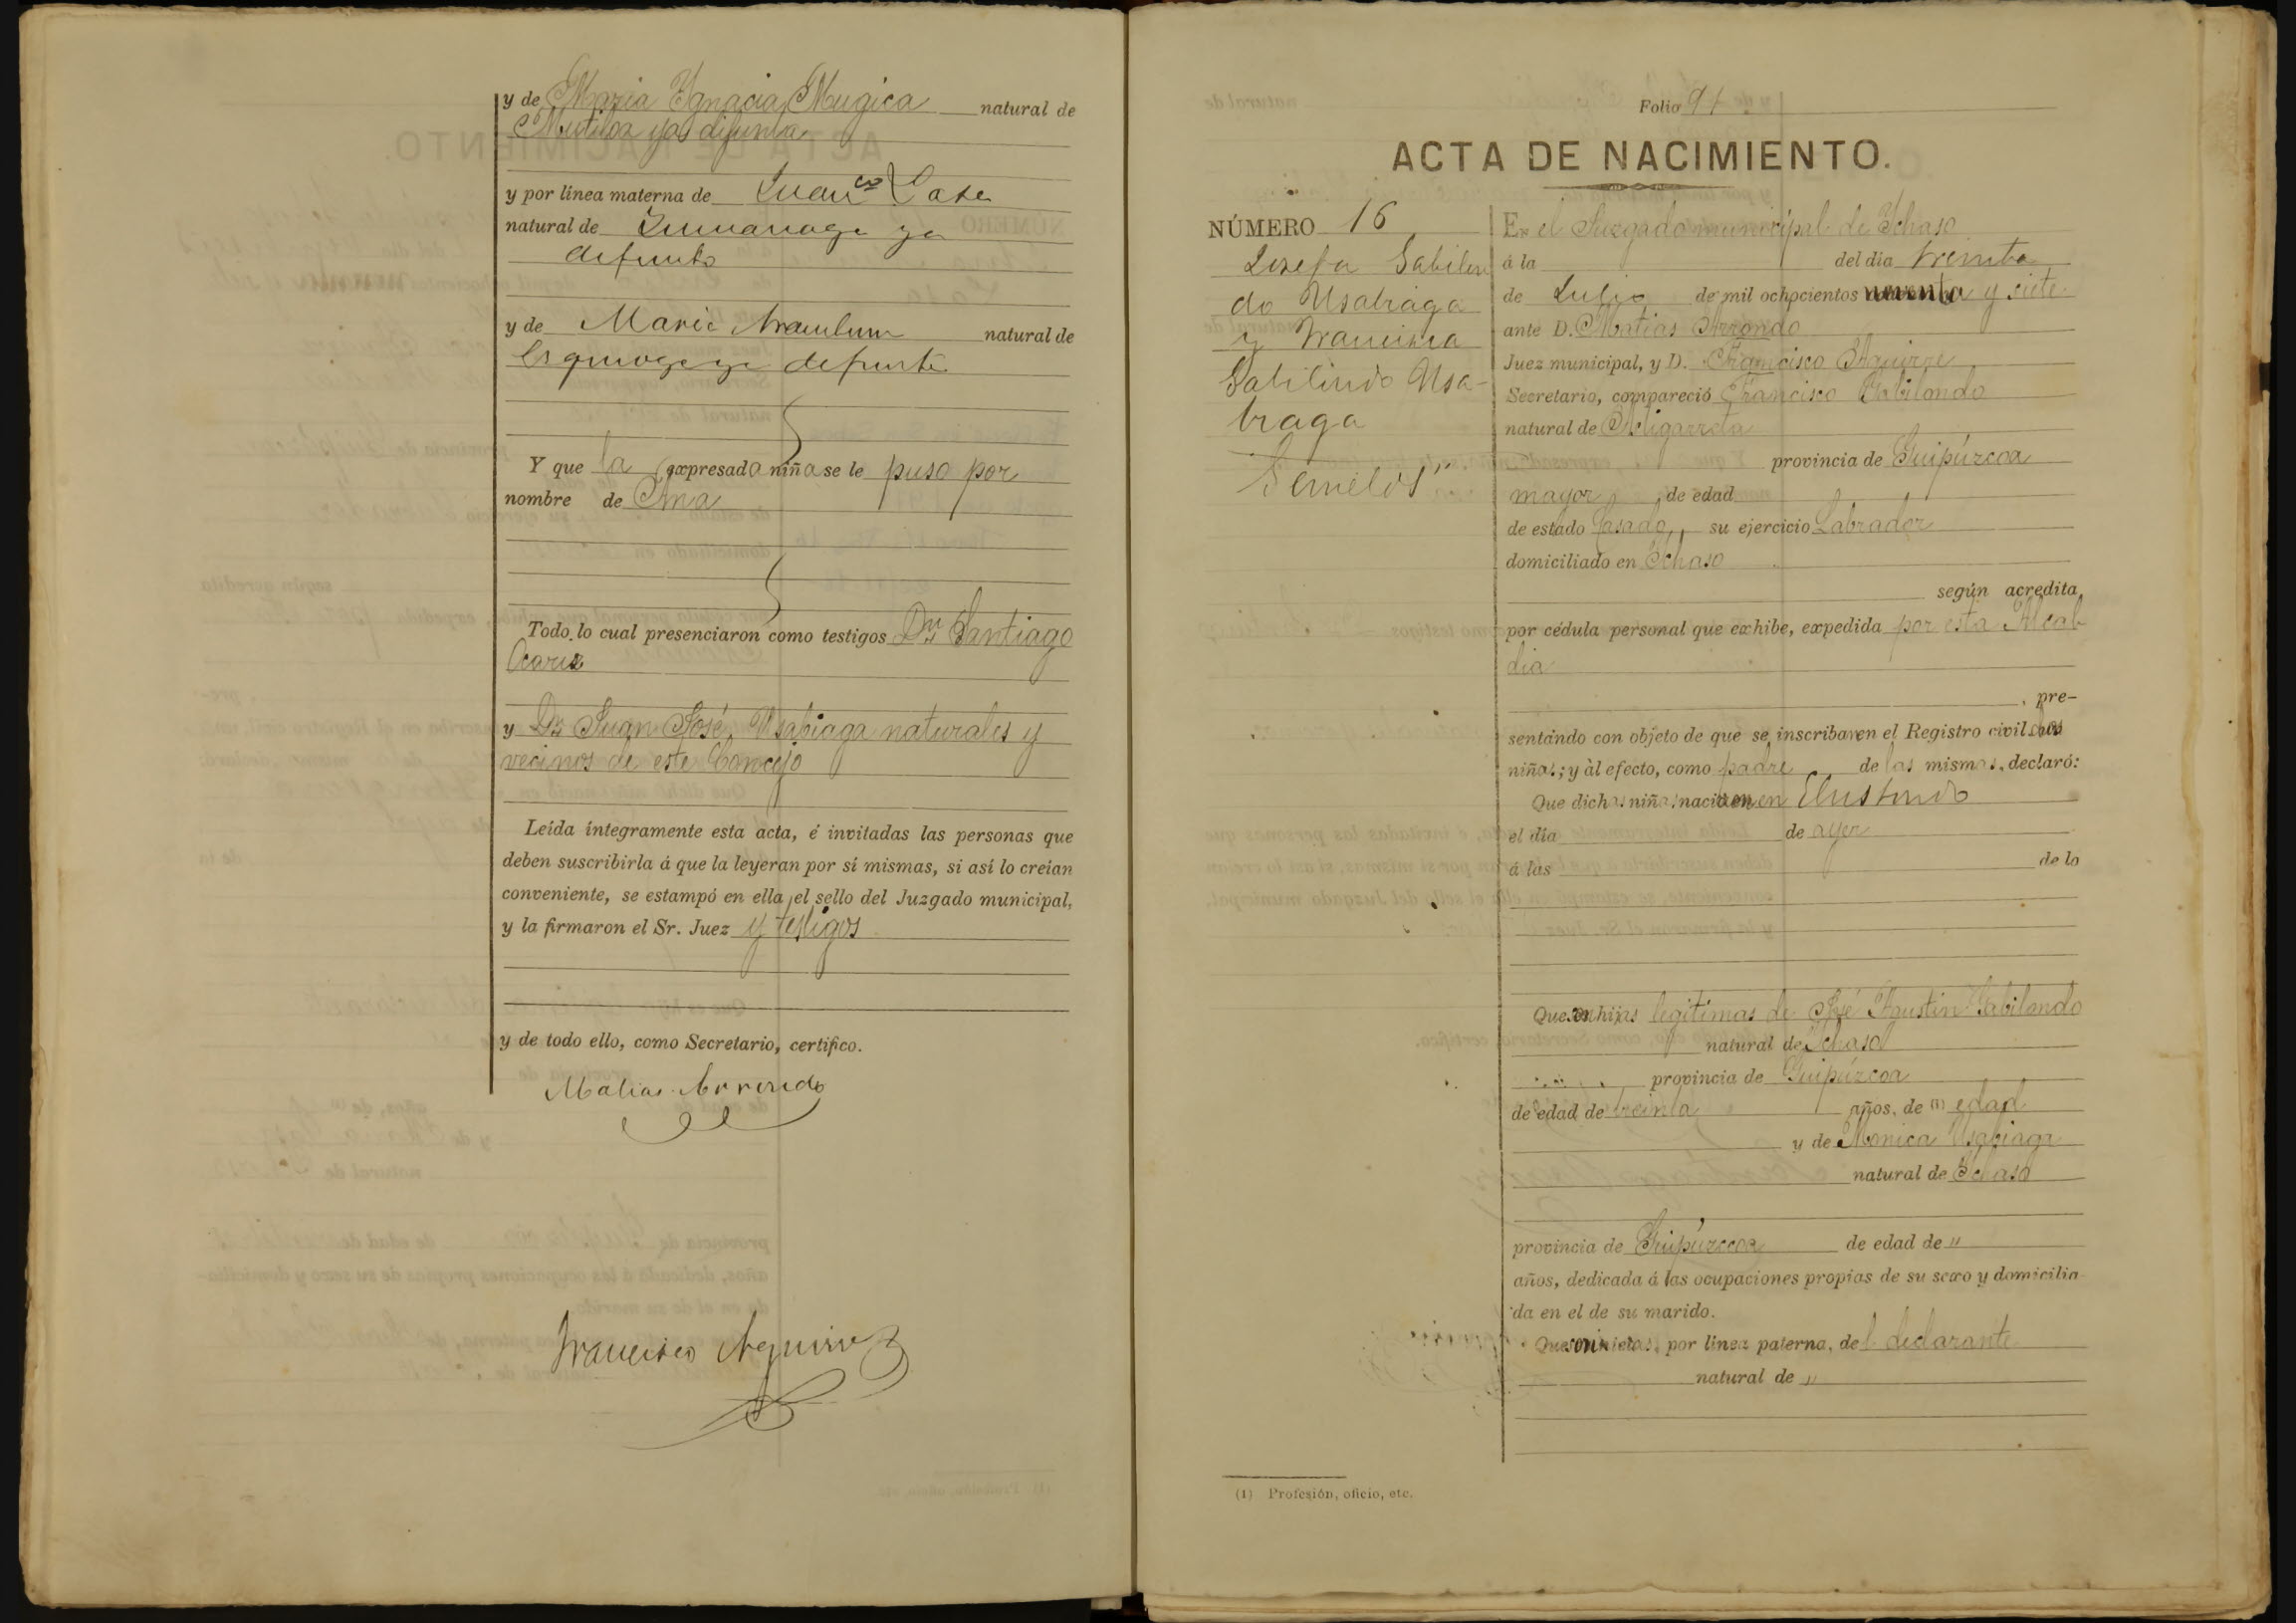 y de Maria Ygnacia Mugica natural de
Mutiloa ya difunta
y por línea materna de Juan Cº Lasa
natural de Zumarraga ya
defunto
y de Maria Aramburu natural de
Esquioga ya defunta
Y que la expresada niña se le puso por
nombre de Ana
Todo lo cual presenciaron como testigos Dn Santiago
Acariz
y Dn Juan José Usabiaga naturales y
vecinos de este Concejo
Leída íntegramente esta acta, é invitadas las personas que
deben suscribirla á que la leyeran por sí mismas, si así lo creían
conveniente, se estampó en ella el sello del Juzgado municipal,
y la firmaron el Sr. Juez y testigos
y de todo ello, como Secretario, certifico.
Matias Arrondo
Francisco Aguirre
Folio 91
ACTA DE NACIMIENTO.
NÚMERO 16
Josefa Gabilon
do Usabiaga
y Francisca
Gabilondo Usa-
biaga
Gemelos"
En el Juzgado municipal de Ychaso
á la del día treinta
de Julio de mil ochocientos noventa y siete
ante D. Matias Arrondo
Juez municipal, y D. Francisco Aguirre
Secretario, compareció Francisco Gabilondo
natural de Astigarreta
provincia de Guipúzcoa
mayor de edad
de estado Casado, su ejercicio Labrador
domiciliado en Ychaso
según acredita
por cédula personal que exhibe, expedida por esta Alcal
dia
, pre-
sentando con objeto de que se inscriban en el Registro civil dos
niñas; y al efecto, como padre de las mismas, declaró:
Que dichas niñas nacieron en Elustondo
el día de ayer
á las de la
Que son hijas legitimas de José Agustin Gabilondo
natural de Ychaso
provincia de Guipúzcoa
de edad de treinta años, de (1) edad
y de Monica Usabiaga
natural de Ychaso
provincia de Guipúzccoa de edad de "
años, dedicada á las ocupaciones propias de su sexo y domicilia
da en el de su marido.
Que son nietas, por línea paterna, del declarante
natural de "
(1) Profesión, oficio, etc.